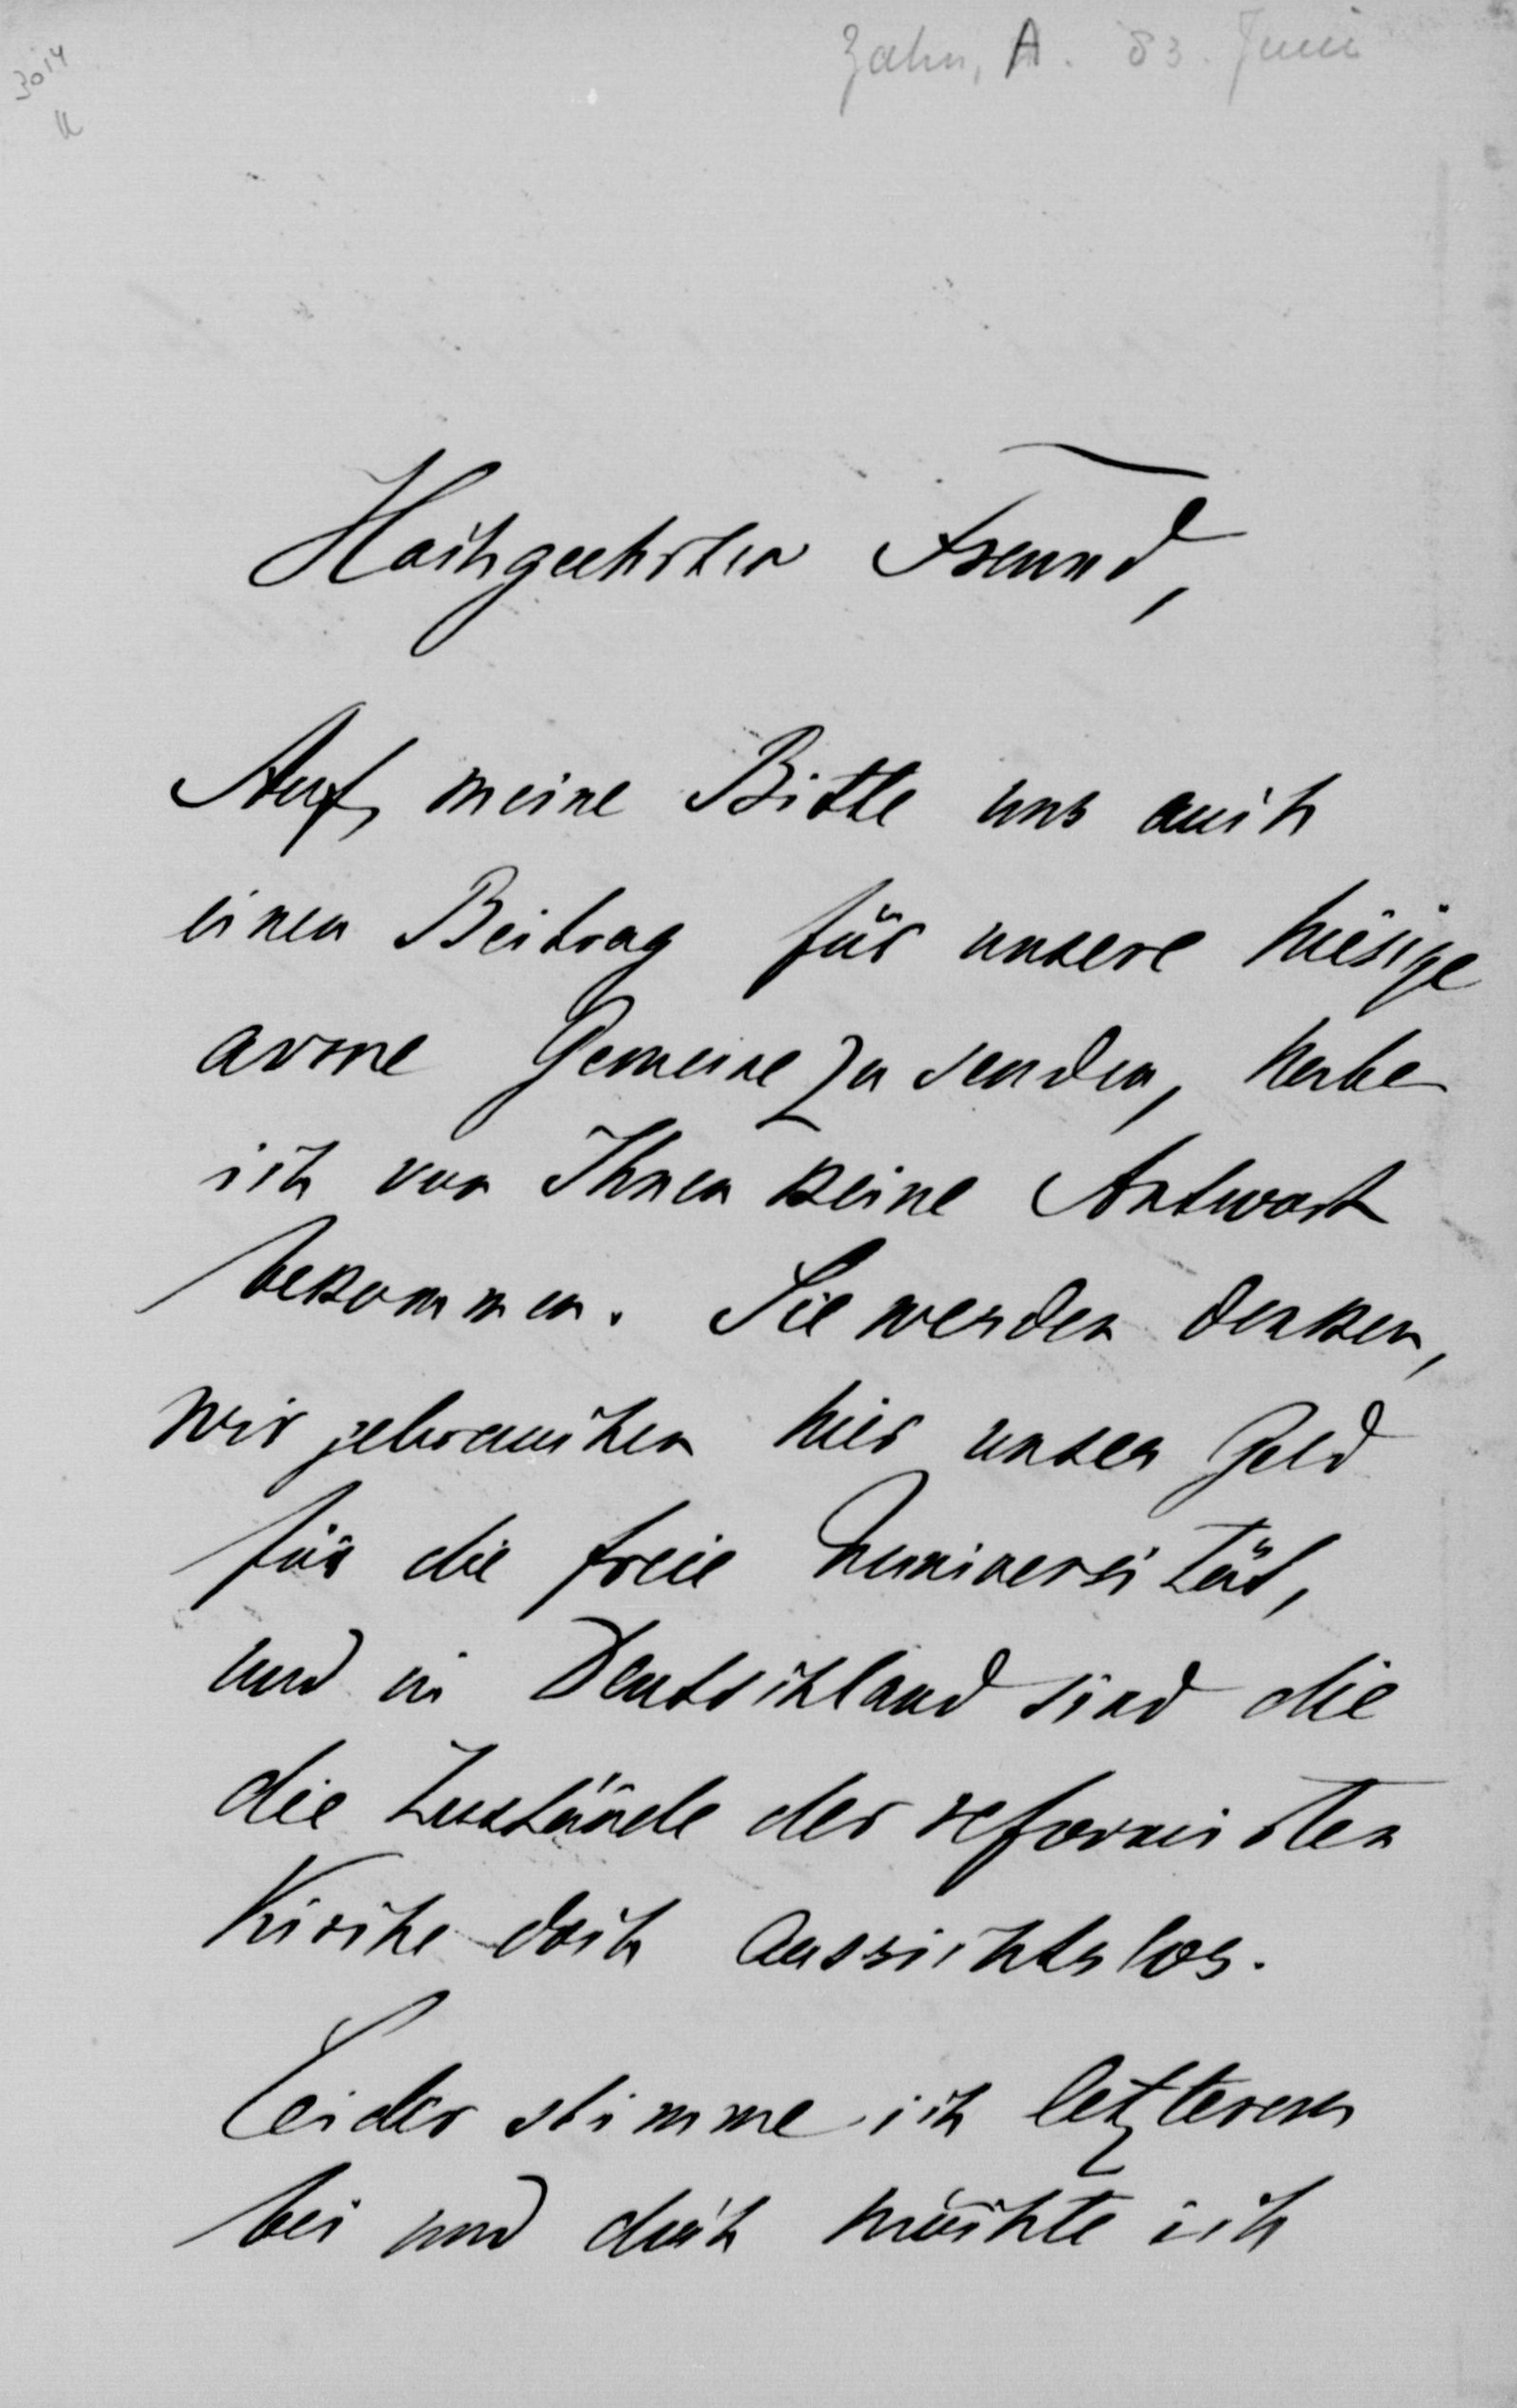 Zahn, A. 83. Juni
3014
Hochgeehrter Freund,
Auf meine Bitte uns auch
einen Beitrag für unsere hiesige
arme Gemeine zu senden, habe
ich von Ihnen keine Antwort
bekommen. Sie werden denken,
wir gebrauchen hier unser Geld
für die freie Universität,
und in Deutschland sind die
die Zustände der reformirten
Kirche doch aussichtslos.
Leider stimme ich letzterem
bei und doch möchte ich